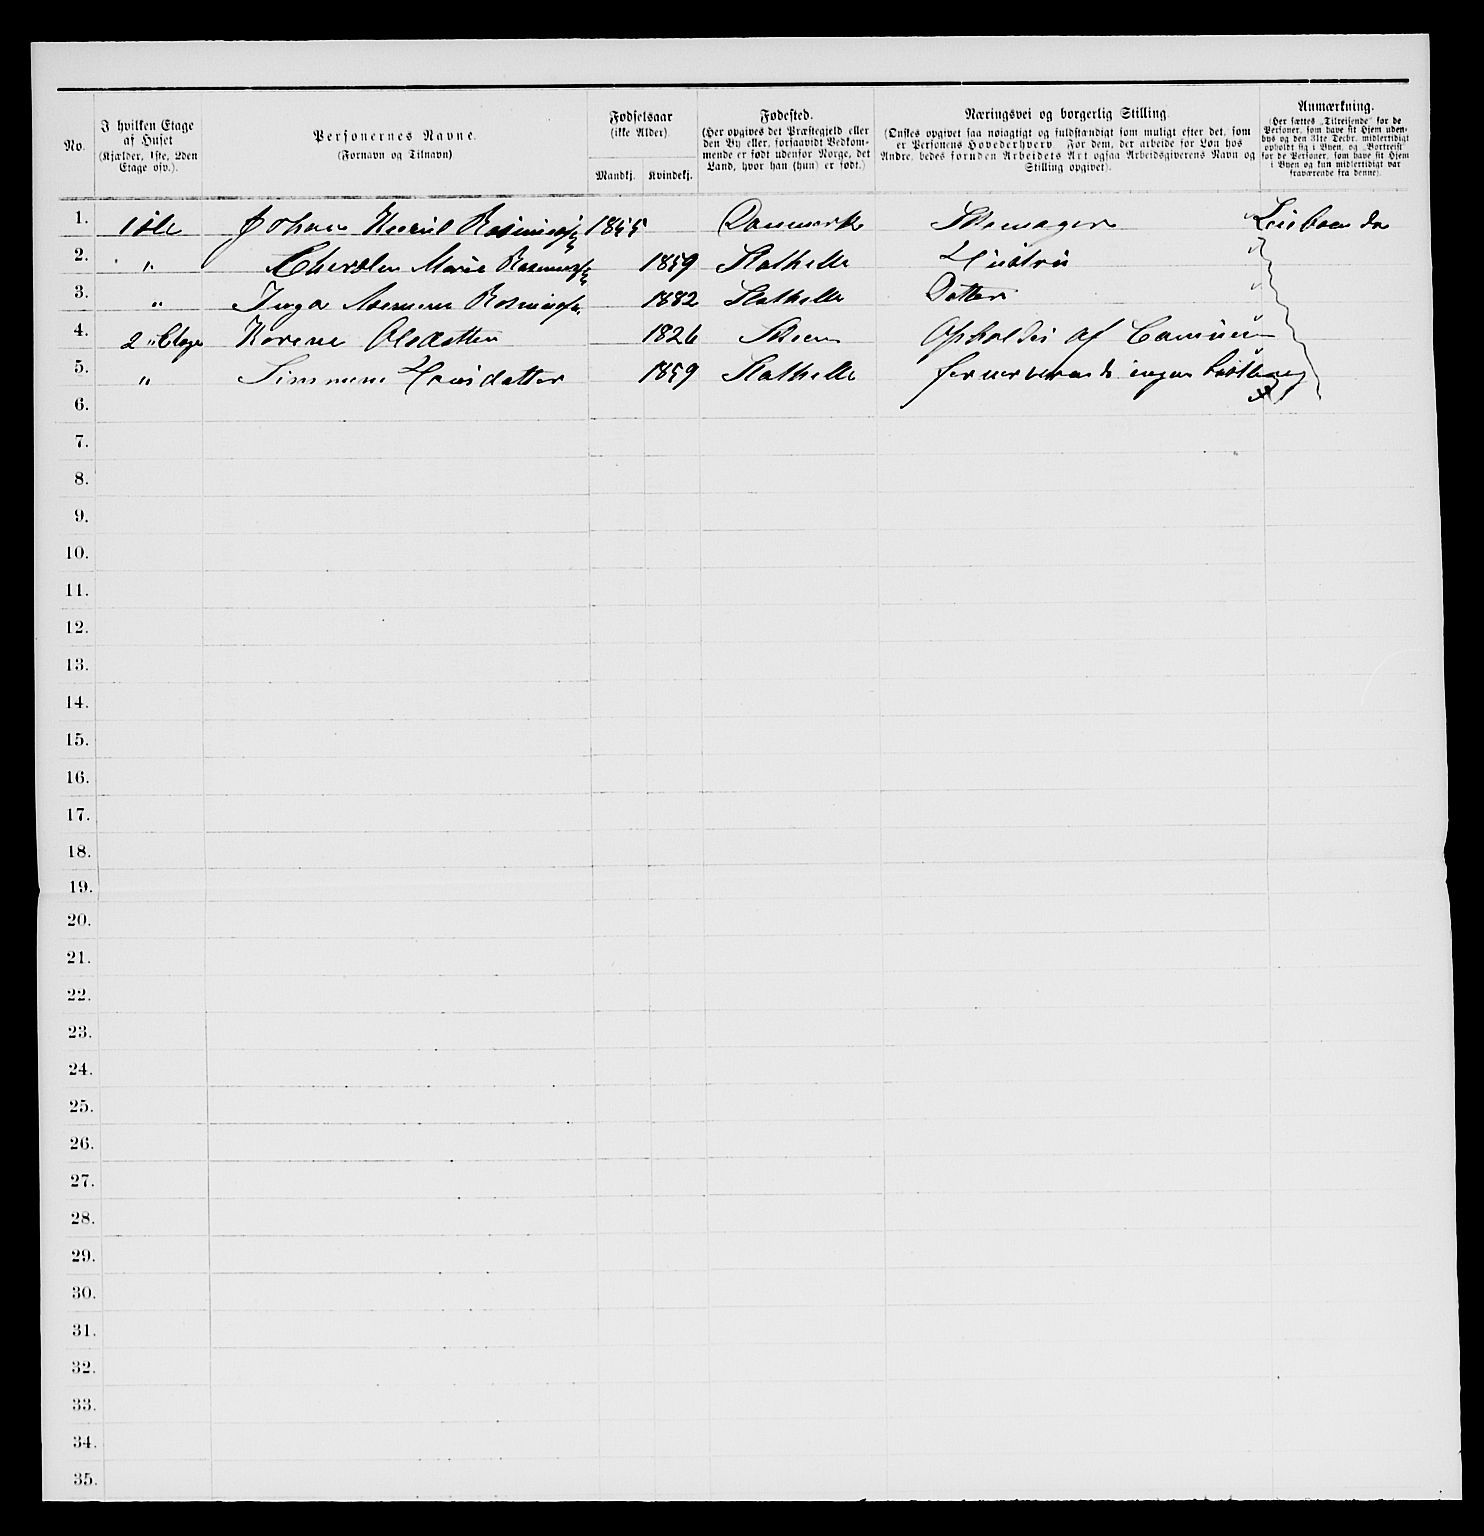 No.
I hvilken Etage
af Huset
(Kjælder, 1ste, 2den
Etage osv.).
Personernes Navne.
(Fornavn og Tilnavn)
Fødselsaar
(ikke Alder)
Mandkj.
Kvindekj.
Fødested.
(Her opgives det Præstegjeld eller
den By eller, forsaavidt Vedkom-
mende er født udenfor Norge, det
Land, hvor han (hun) er født.)
Næringsvei og borgerlig Stilling.
(Ønskes opgivet saa nøiagtigt og fuldstændigt som muligt efter det, som
er Personens Hovederhverv. For dem, der arbeide for Løn hos
Andre, bedes foruden Arbeidets Art ogsaa Arbeidsgiverens Navn og
Stilling opgivet).
Anmærkning.
(Her sættes „Tilreisende" for de
Personer, som have sit Hjem uden-
bys og den 31te Decbr. midlertidigt
opholdt sig i Byen, og „Bortreist"
for de Personer, som have sit Hjem
i Byen og kun midlertidigt var
fraværende fra denne).
1. 1ste Johan 1855 Danmark Skomager
2. " Marie 1859 Stathelle Hustru
3. " Inga 1882 Stathelle Datter
4. 2 " Etage Karene Olsdatter 1826 Skien af
5. " 1859 Stathelle ingen
6.
7.
8.
9.
10.
11.
12.
13.
14.
15.
16.
17.
18.
19.
20.
21.
22.
23.
24.
25.
26.
27.
28.
29.
30.
31.
32.
33.
34.
35.